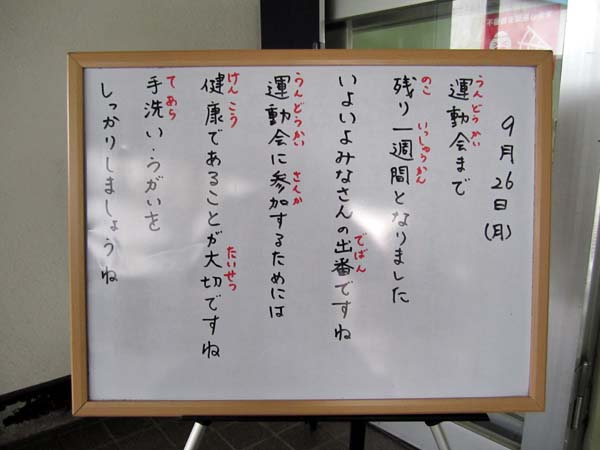 9月26日(月)
運動会まで
うんどうかい
残り一週間となりました
のこ いっしゅうかん
いよいよみなさんの出番ですね
でばん
運動会に参加するためには
うんどうかい さんか
健康であることが大切ですね
けんこう たいせつ
手洗い・うがいを
てあら
しっかりしましょうね